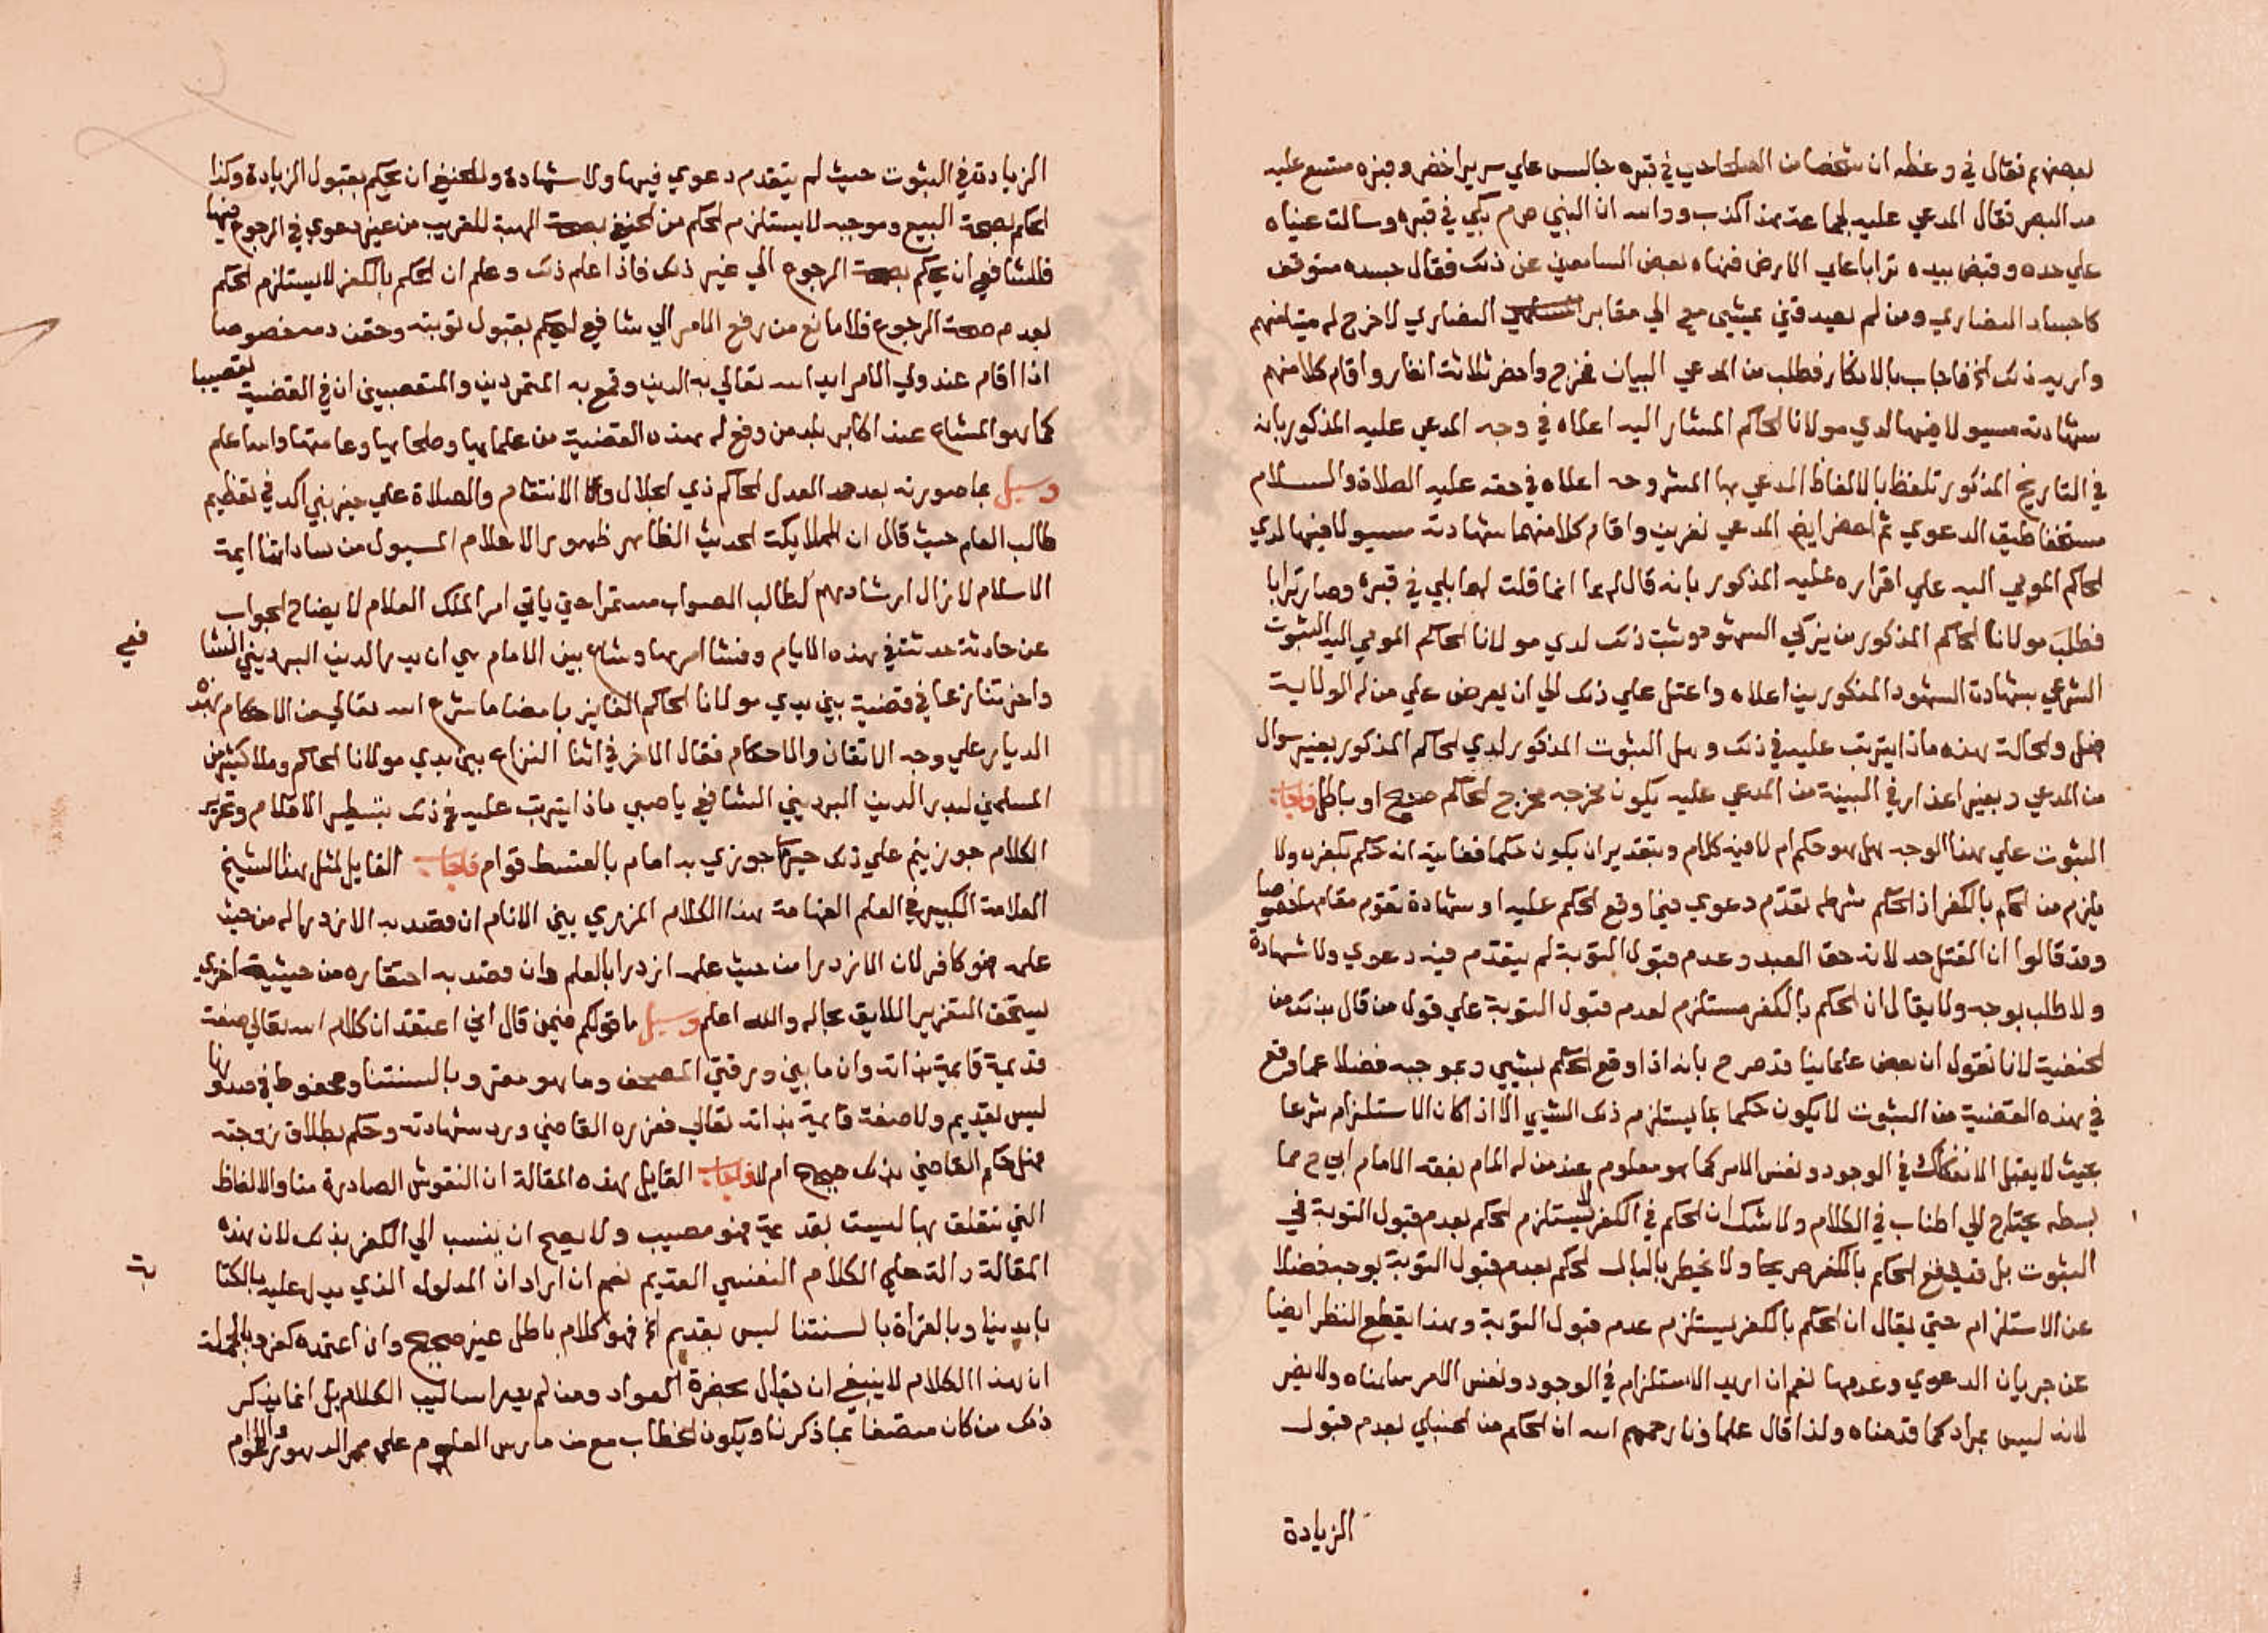 بعضهم فقال في وعظه ان شخصا من الصلحا حي في قبره جالس علي سرير اخضر وقبره متسع عليه
مد البصر فقال المدعي عليه لجماعة هذا كذب ووالله ان النبي صم بكي في قبره وسالت عيناه
علي خده وقبض بيده ترابا علي الارض فنهاه بعض السامعين عن ذلك فقال جسده
كاجساد النصاري ومن لم يصدقني يمشي معي الي مقابر النصاري لاخرج له ميتا منهم
واريه ذلك الخ فاجاب بالانكار فطلب من المدعي البيان فخرج واحضر ثلاثة انفار واقام كلا منهم
شهادته مسيولا فيها لدي مولانا الحاكم المشار اليه اعلاه في وجه المدعي عليه المذكور بانه
في التاريخ المذكور تلفظ بالالفاظ المدعي بها المشروحه اعلاه في حقه عليه الصلاة والسلام
مستخفا طبق الدعوي ثم احضر ايضا المدعي نفرين واقام كلا منهما شهادته مسيولا فيها لدي
الحاكم المومي اليه علي اقراره عليه المذكور بانه قال لهما انما قلت لهما بلي في قبره وصار ترابا
فطلب مولانا الحاكم المذكور من يزكي الشهود وثبت ذلك لدي مولانا الحاكم المومي اليه الثبوت
الشرعي بشهادة الشهود المذكورين اعلاه واعتل علي ذلك الي ان يعرض علي من له الولاية
فهل والحالة هذه ماذا يترتب عليه في ذلك وهل الثبوت المذكور لدي الحاكم المذكور بغير سوال
من المدعي وبغير اعذار في البينة من المدعي عليه يكون مخرجه مخرج الحكم صحيح او باطل فاجاب
الثبوت علي هذا الوجه هل هو حكم ام لا فيه كلام وبتقدير ان يكون حكما فغايته انه حكم بكفره ولا
يلزم من الحكم بالكفر اذ الحكم شرطه تقدم دعوي فيما وقع الحكم عليه او شهادة تقوم مقامها خصوصا
وقد قالوا ان القتل حد لانه حق العبد وعدم قبول التوبة لم يتقدم فيه دعوي ولا شهادة
ولا طلب بوجه ولا يقال ان الحكم بالكفر مستلزم لعدم قبول التوبة علي قول من قال بذلك من
الحنفية لانا نقول ان بعض علماينا قد صرح بانه اذا وقع الحكم بشيي وبموجبه فضلا عما وقع
في هذه القضية من الثبوت لا يكون حكما بما يستلزم ذلك الشيي الا اذا كان الاستلزام شرعا
بحيث لا يقبل الانفكاك في الوجود ونفس الامر كما هو معلوم عند من له المام بفقه الامام ابي ح مما
بسطه يحتاج الي اطناب في الكلام ولا شك ان الحكم في الكفر لا يستلزم الحكم بعدم قبول التوبة في
الثبوت بل قد يقع الحكم بالكفر صريحا ولا يخطر بالبال الحكم بعدم قبول التوبة بوجه فضلا
عن الاستلزام حتي يقال ان الحكم بالكفر يستلزم عدم قبول التوبة وهذا بقطع النظر ايضا
عن جريان الدعوي وعدمها نعم ان اريد الاستلزام في الوجود ونفس الامر سلمناه ولا يضر
لانه ليس بمراد كما قدمناه ولذا قال علماونا رحمهم الله ان الحكم من الحنبلي بعدم قبول
الزيادة
الزيادة في الثبوت حيث لم يتقدم دعوي فيها ولا شهادة وللحنفي ان يحكم بقبول الزيادة وكذا
الحكم بصحة البيع وموجبه لا يستلزم الحكم من الحنفي بصحة الهبة للقريب من غير دعوي في الرجوع فيها
فللشافعي ان يحكم بصحة الرجوع الي غير ذلك فاذا علم ذلك وعلم ان الحكم بالكفر لا يستلزم الحكم
بعدم صحة الرجوع فلا مانع من رفع الامر الي شافعي ليحكم بقبول توبته وحقن دمه خصوصا
اذا اقام عند ولي الامر ايد الله تعالي به الدين وقمع به المتمردين والمتعصبين ان في القضية تعصيبا
كما هو المشاع عند اكابر بلد من وقع له هذه القضية من علمايها وصلحايها وعامتها والله اعلم
وسيل بما صورته بعد حمد العدل الحاكم ذي الجلال والانتقام والصلاة علي خير نبي اكد في تعظيم
طالب العلم حيث قال ان الملايكت الحديث الظاهر ظهور الاعلام المسيول من ساداتنا ايمة
الاسلام لا زال ارشادهم لطالب الصواب مستمرا حتي ياتي امر الملك العلام لايضاح الجواب
عن حادثة حدثت في هذه الايام وفشا امرها وشاع بين الامام هي ان بدر الدين البرديني الشا
فعي
واخر تنازعا في قضية بين يدي مولانا الحاكم الفايز بامضا ما شرع الله تعالي من الاحكام بهذه
الديار علي وجه الاتقان والاحكام فقال الاخر في اثنا النزاع بين يدي مولانا الحاكم وملا كثير من
المسلمين لبدر الدين البرديني الشافعي يا صبي ماذا يترتب عليه في ذلك بتسطير الاقلام وتحرير
الكلام جوزيتم علي ذلك خير ما جوزي به امام بالقسط قوام فاجاب القايل لمثل هذا الشيخ
العلامة الكبير في العلم الفهامة هذا الكلام المزري بين الانام ان قصد به الازدرا له من حيث
علمه فهو كافر لان الازدرا من حيث علمه ازدرا بالعلم وان قصد به احتقاره من حيثية اخري
يستحق التعزير اللايق بحاله والله اعلم وسيل ما قولكم فيمن قال اني اعتقد ان كلام الله تعالي صفة
قديمة قايمة بذاته وان ما بين ورقتي المصحف وما هو مقرو بالسنتنا ومحفوظ في صدورنا
ليس بقديم ولا صفة قايمة بذاته تعالي فعزره القاضي ورد شهادته وحكم بطلاق زوجته
فهل حكم القاضي بذلك صحيح ام لا فاجاب القايل بهذه المقالة ان النقوش الصادرة منا والالفاظ
التي نتلفظ بها ليست بقديمة فهو مصيب ولا يصح ان ينسب الي الكفر بذلك لان هذه
المقالة دالة علي الكلام النفسي القديم نعم ان اراد ان المدلول الذي يدل عليه بالكتا
بة
بايدينا وبالقراة بالسنتنا ليس بقديم الخ فهو كلام باطل غير صحيح وان اعتقده كفر وبالجملة
ان هذا الكلام لا ينبغي ان يقال بحضرة العوام ومن لم يدر اساليب الكلام بل انما يذكر
ذلك من كان متصفا بما ذكرنا ويكون الخطاب مع من مارس العلوم علي ممر الدهور